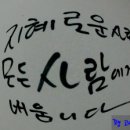 지혜로운 사람은
모든 사람에게
배웁니다
By